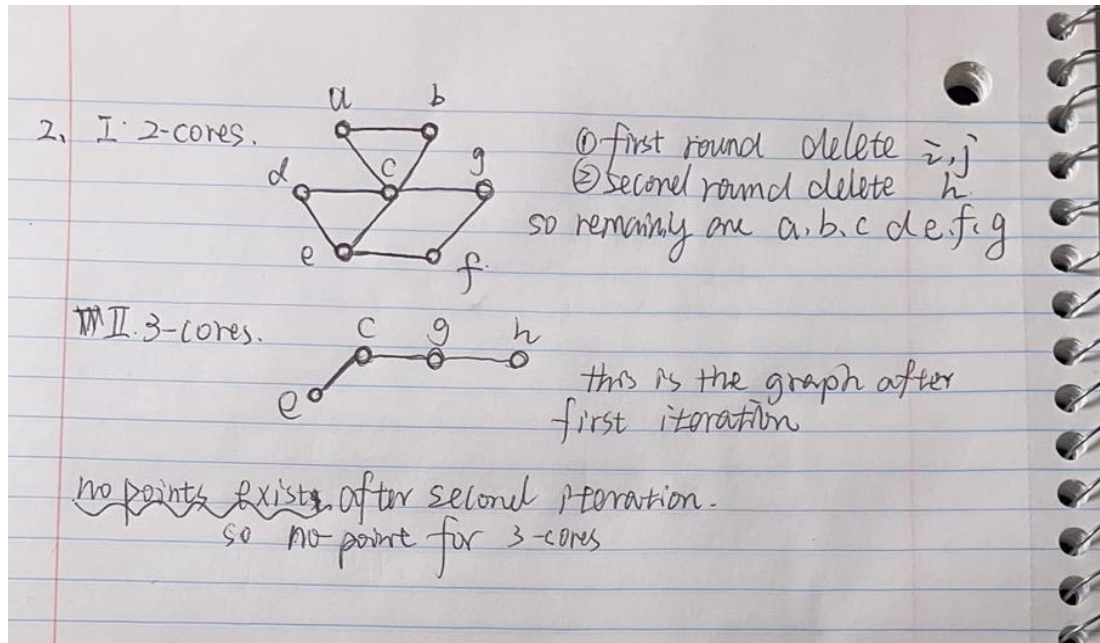 a b
2, I. 2-cores.
d c g
e f.
① first round delete i,j
② second round delete h.
so remainly one a.b.c d e.f.g
II. 3-cores.
c g h
e
this is the graph after
first itoration
no points exists after second itoration.
so no point for 3-cores